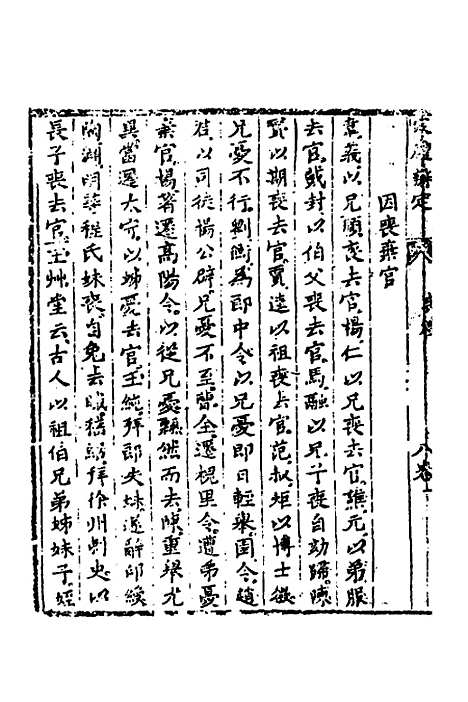 因喪棄官
韋義以兄順喪去官楊仁以兄喪去官譙元以弟服
去官戴封以伯父喪去官馬融以兄子喪自劾歸陳
寔以期喪去官賈逵以祖喪去官范叔矩以博士徵
兄憂不行劉衡為郎中令以兄憂即日輕舉圉令趙
君以司徒楊公辟兄憂不至曹全遷槐里令遭弟憂
棄官楊著遷高陽令以從兄憂飄然而去陳重舉尤
異當遷太守以姊憂去官王純拜郎失妹遂辭印綬
陶淵明 程氏妹喪自免去 嵇紹拜徐州刺史以
長子喪去官王 堂云古人以祖伯兄弟姊妹子姪
八卷